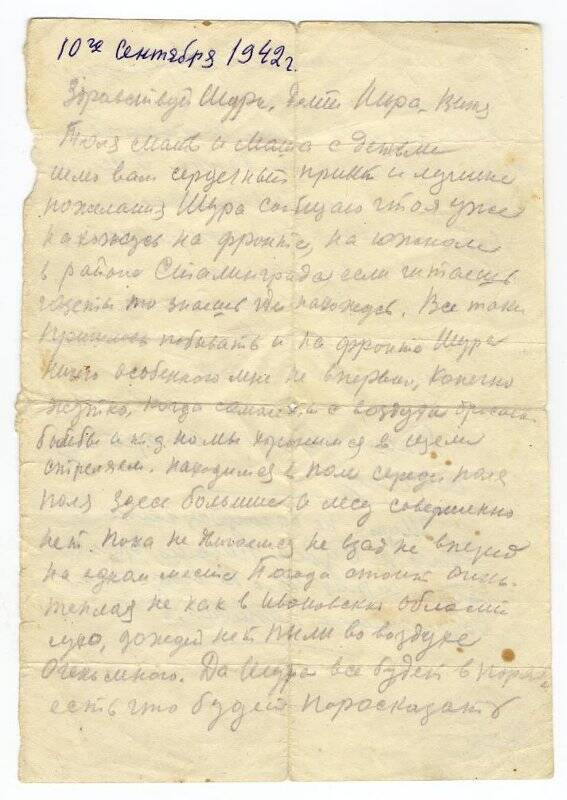 10го Сентября 1942г.
Здравствуй Шура, Дети Нира, Витя
Толя мать и Маша с детьми
шлю вам сердечный привет и лучшие
пожелания Шура сообщаю что я уже
нахожусь на фронте, на южном
в районе Сталинграда если читаешь
газеты то знаешь где нахожусь. Все таки
пришлось побывать и на фронте Шура
ничего особенного мне не впервой, конечно
жутко, когда самолеты с воздуха бросают
бомбы и т.д но мы хоронимся в щели
стреляем. Находимся в поле середи поля
поля здесь большие а лесу совершенно
нет. Пока не двигаемся не взад не вперед
на одном месте Погода стоит очень
теплая не как в Ивановской области
сухо, дождей нет пыли во воздухе
Очень много. Да Шура все будет в поряд
есть что будет порасказать